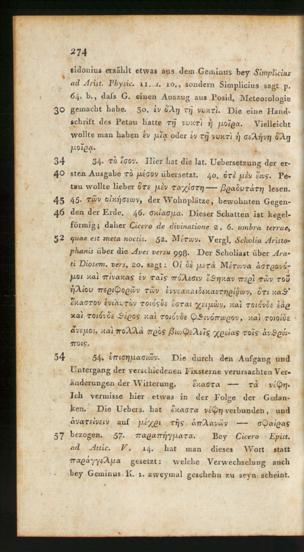 274
sidonius erzählt etwas aus dem Geminus bey Simplicius
ad Arist. Physic. 11. s. 10., sondern Simplicius sagt p.
64. b., dass G. einen Auszug aus Posid. Meteorologie
30 gemacht habe. 30. ἐν ὅλῃ τῇ νυκτὶ. Die eine Hand-
schrift des Petau hatte τῇ νυκτὶ ἡ μοῖρα. Vielleicht
wollte man haben ἐν μίᾳ oder ἐν τῇ νυκτὶ ἡ σελήνη ὅλη
μοῖρα.
34 34. τὸ ἴσον. Hier hat die lat. Uebersetzung der er-
40 sten Ausgabe τὸ μέσον übersetzt. 40. ὁτὲ μὲν ἕως. Pe-
tau wollte lieber ὅτε μὲν ταχίστη — βραδυτάτη lesen.
45 45. τῶν οἰκήσεων, der Wohnplätze, bewohnten Gegen-
46 den der Erde. 46. σκίασμα. Dieser Schatten ist kegel-
förmig; daher Cicero de divinatione 2, 6. umbra terrae,
52 quae est meta noctis. 52. Μέτων. Vergl. Scholia Aristo-
phanis über die Aves versu 998. Der Scholiast über Ara-
ti Diosem. vers. 20. sagt: Οἱ δὲ μετὰ Μέτωνα ἀστρονό-
μοι καὶ πίνακας ἐν ταῖς πόλεσιν ἔθηκαν περὶ τῶν τοῦ
ἡλίου περιφορῶν τῶν ἐννεακαιδεκαετηρίδων, ὅτι καθ᾽
ἕκαστον ἐνιαυτὸν τοιόσδε ἔσται χειμών, καὶ τοιόνδε ἔαρ
καὶ τοιόνδε θέρος καὶ τοιόνδε φθινόπωρον, καὶ τοιοίδε
ἄνεμοι, καὶ πολλὰ πρὸς βιωφελεῖς χρείας τοῖς ἀνθρώ-
ποις.
54 54. ἐπισημασιῶν. Die durch den Aufgang und
Untergang der verschiedenen Fixsterne verursachten Ver-
änderungen der Witterung. ἕκαστα — τὰ νέφη.
Ich vermisse hier etwas in der Folge der Gedan-
ken. Die Uebers. hat ἕκαστα νέφη verbunden, und
ἀνατείνειν auf μέχρι τῆς ἀπλανῶν — σφαίρας
57 bezogen. 57. παραπήγματα. Bey Cicero Epist.
ad Attic. V. 14. hat man dieses Wort statt
παράγγελμα gesetzt: welche Verwechselung auch
bey Geminus K. 1. zweymal geschehn zu seyn scheint.